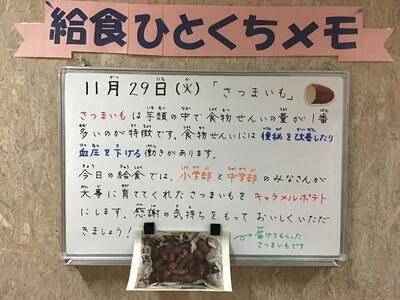 給食ひとくちメモ
11月29日(火)「さつまいも」
さつまいもは芋類の中で食物せんいの量が1番
多いのが特徴です。食物せんいには便秘を改善したり
血圧を下げる働きがあります。
今日の給食では、小学部と中学部のみなさんが
大事に育ててくれたさつまいもをキャラメルポテト
にします。感謝の気持ちをもっておいしくいただ
きましょう!
届けてもらった
さつまいもです